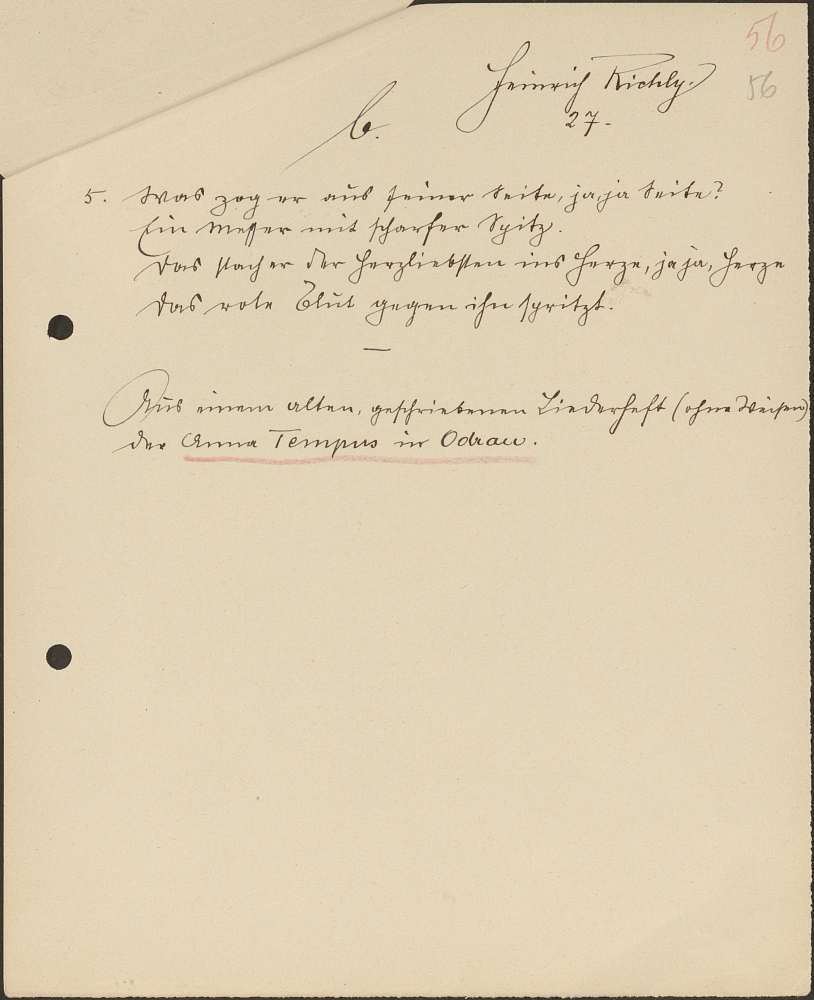 56
Heinrich Richly.
56
27.
b.
5. Was zog er aus seiner Seite, ja, ja Seite?
Ein Messer mit scharfer Spitz.
Das stach er der Herzliebsten ins Herze, ja ja, Herze
Das rote Blut gegen ihn spritzt.
Aus einem alten, geschriebenen Liederheft (ohne Weisen)
der Anna Tempus in Odrau.